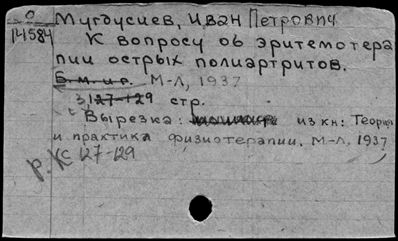 О
14584
Мугдусиев, Иван Петрович
К вопросу об эритемотера
пии острых полиартритов.
Б.м. и г. М-Л, 1937
127-129 стр.
Вырезка: из кн: Теория
и практика физиотерапии. М-Л. 1937
р. КС 127-129